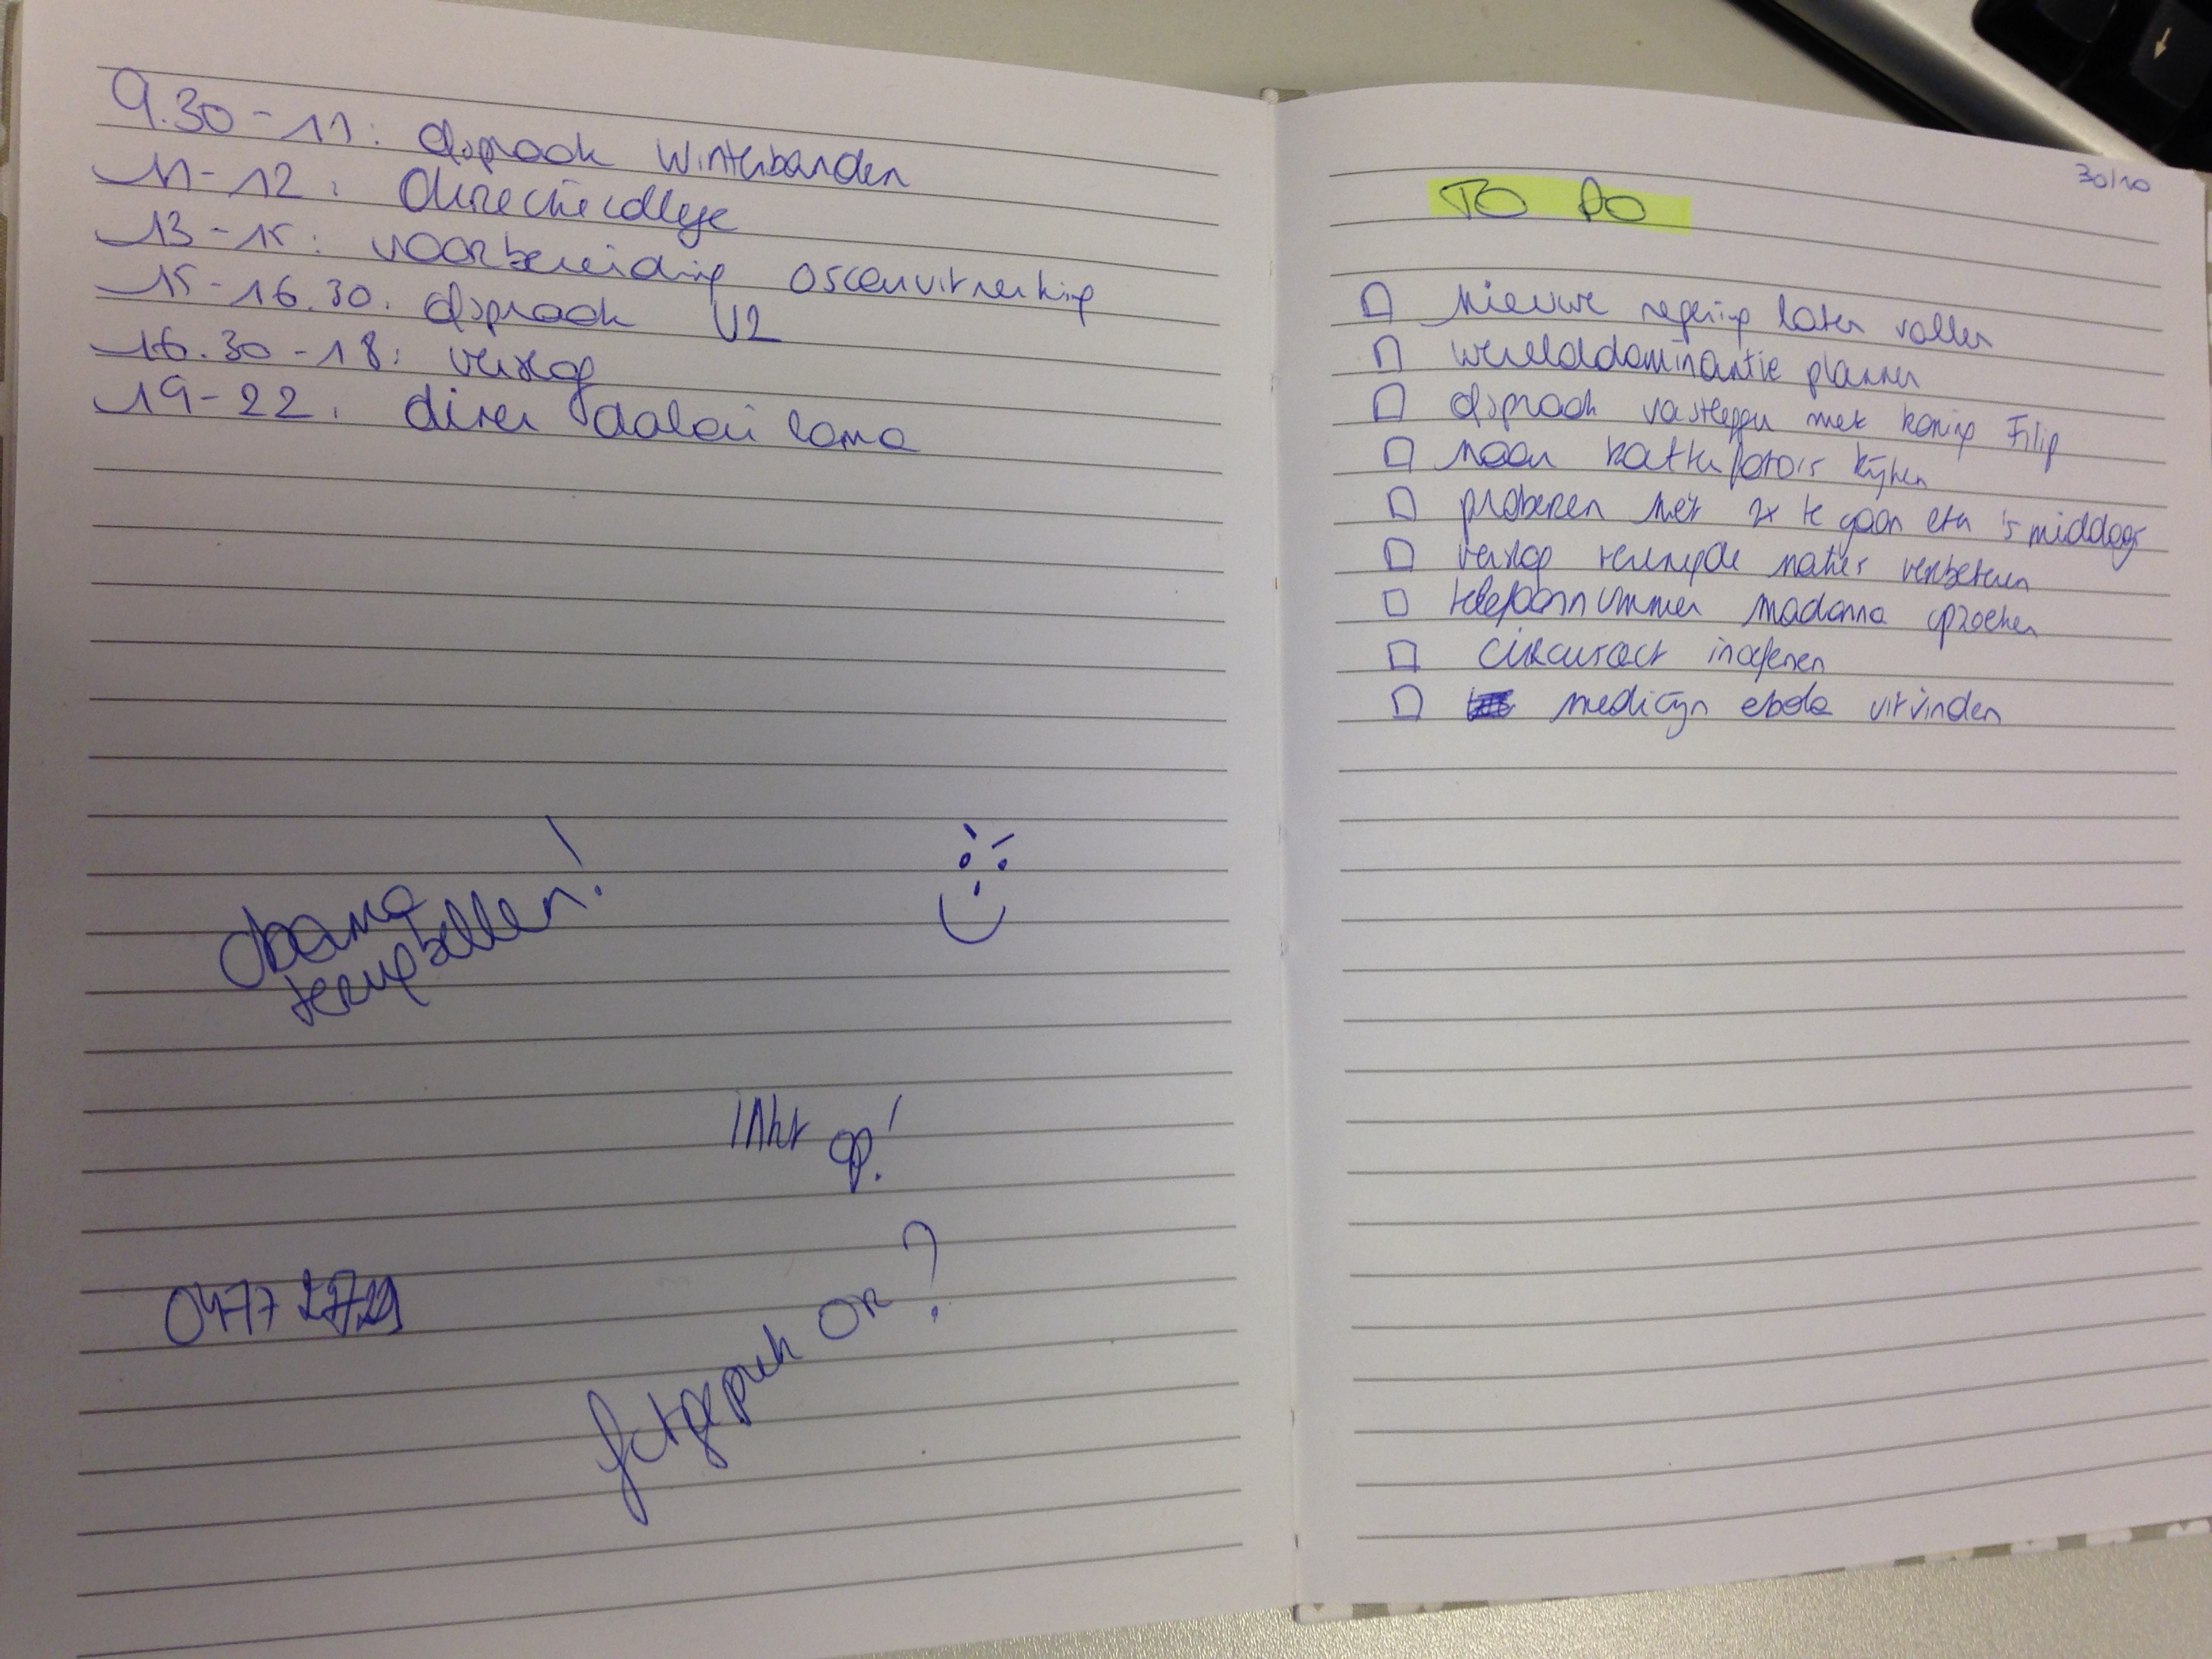 9.30 - 11: afspraak winterbanden
11 - 12: directiecollege
13 - 15: voorbereiding oscaruitreiking
15 - 16.30: afspraak U2
16.30 - 18: verslag
19 - 22: diner dalai lama
Obama
terugbellen!
inkt op!
0477
ok?
30/10
TO DO
nieuwe regering laten vallen
werelddominantie plannen
afspraak vastleggen met koning Filip
naar kattenfoto's kijken
proberen niet 2x te gaan eten 's middags
verslag verenigde naties verbeteren
telefoonnummer madonna opzoeken
circusact inoefenen
medicijn ebola uitvinden